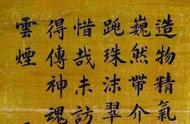 造物精氣
巍然帶介
珠沫翠
惜哉未訪
得傳神魂
雲煙